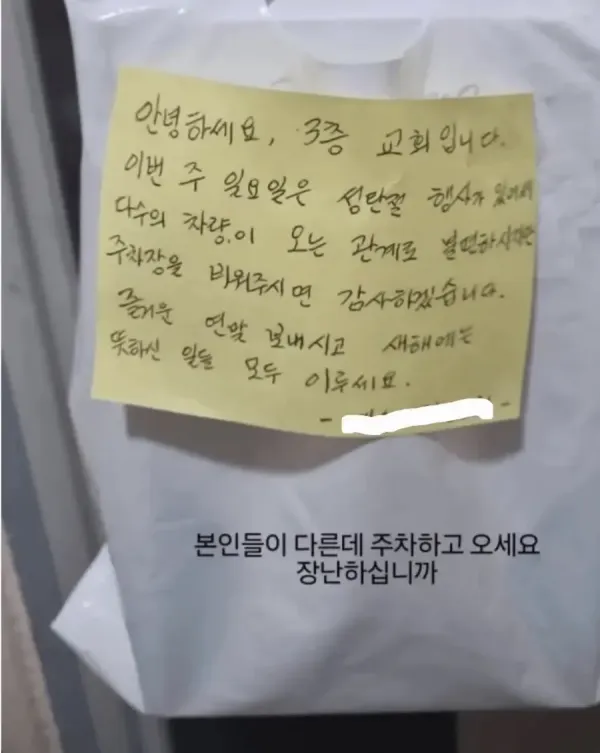 안녕하세요, 3층 교회입니다.
이번 주 일요일은 성탄절 행사가 있어서
다수의 차량이 오는 관계로 불편하시지만
주차장을 비워주시면 감사하겠습니다.
즐거운 연말 보내시고 새해에는
뜻하신 일들 모두 이루세요.
본인들이 다른데 주차하고 오세요
장난하십니까